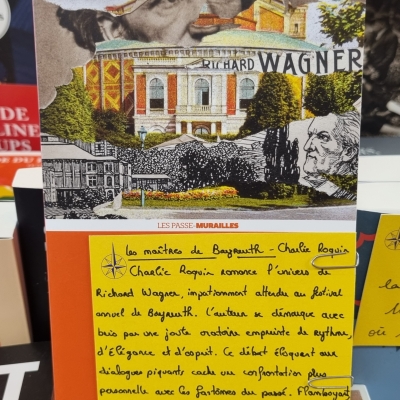 RICHARD WAGNER
LES PASSE-MURAILLES
Les maîtres de Bayreuth - Charlie Roquin
Charlie Roquin romance l'univers de
Richard Wagner, impatiemment attendu au festival
annuel de Bayreuth. L'auteur se démarque avec
brio par une joute oratoire empreinte de rythme,
d'élégance et d'esprit. Ce débat éloquent aux
dialogues piquants cache une confrontation plus
personnelle avec les fantômes du passé. Flamboyant
DE
LINE
UPS
la
où